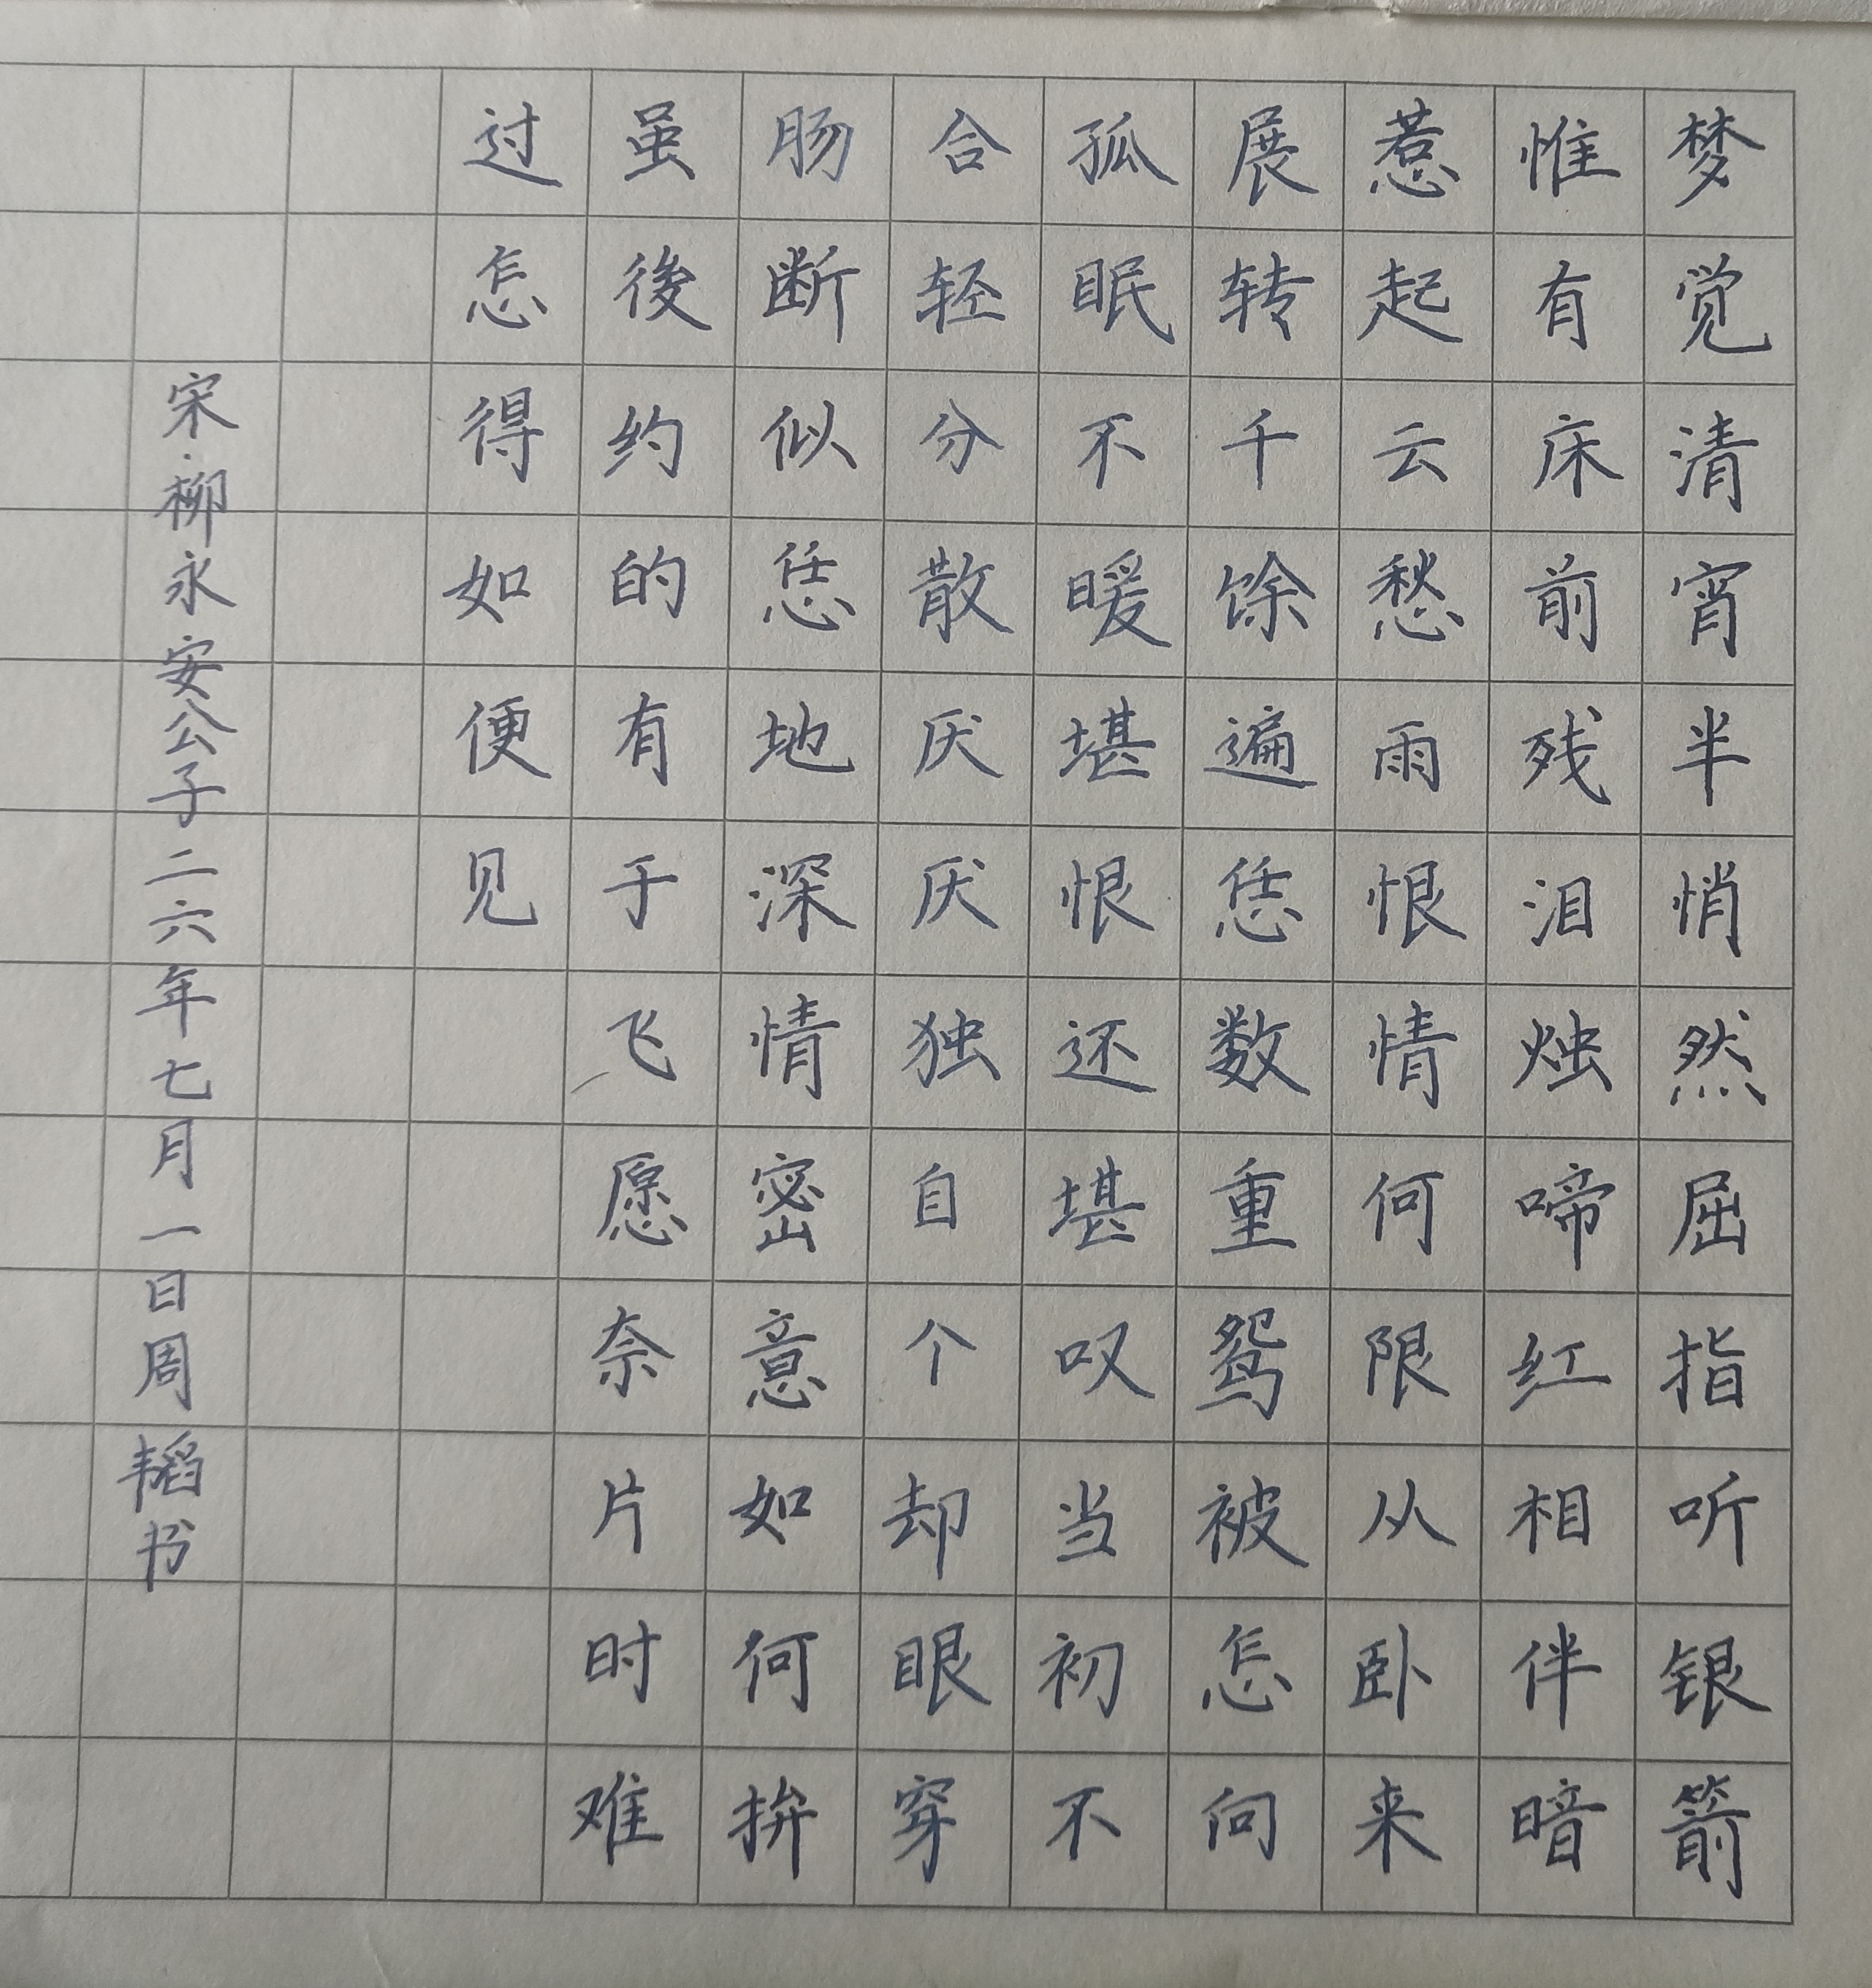 梦觉清宵半悄然屈指听银箭
惟有床前残泪烛啼红相伴暗
惹起云愁雨恨情何限从卧来
展转千馀遍恁数重鸳被怎向
孤眠不暖堪恨还堪叹当初不
合轻分散厌厌独自个却眼穿
肠断似恁地深情密意如何拚
虽後约的有于飞愿奈片时难
过怎得如便见
宋·柳永安公子二六年七月一日周韬书